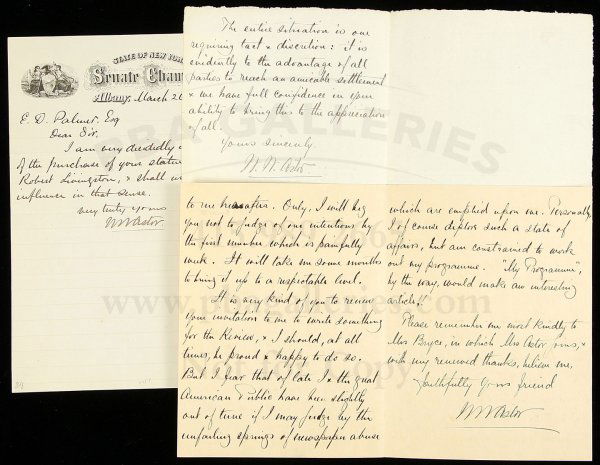 STATE OF NEW YORK
Senate Cham
Albany, March 26
E. D. Palmer, Esq
Dear Sir.
I am very decidedly
of the purchase of your statue
Robert Livingston, & shall
influence in that sense.
Very truly yours
WW Astor.
The entire situation is one
requiring tact & discretion: it is
evidently to the advantage of all
parties to reach an amicable settlement
& we have full confidence in your
ability to bring this to the appreciation
of all.
Yours sincerely.
W. W. Astor.
to me hereafter. Only, I will beg
you not to judge of our intentions by
the first number which is painfully
weak. It will take me some months
to bring it up to a respectable level.
It is very kind of you to renew
your invitation to me to write something
for the Review, & I should, at all
times, be proud & happy to do so.
But I fear that of late I & the great
American Public have been slightly
out of tune if I may judge by the
unfailing springs of newspaper abuse
which are emptied upon me. Personally,
I of course deplore such a state of
affairs, but am constrained to work
out my programme. "My Programme",
by the way, would make an interesting
article!
Please remember me most kindly to
Mrs Bryce, in which Mrs Astor joins, &
with my renewed thanks, believe me,
Faithfully Your friend
WW Astor
GALLERIES
www.